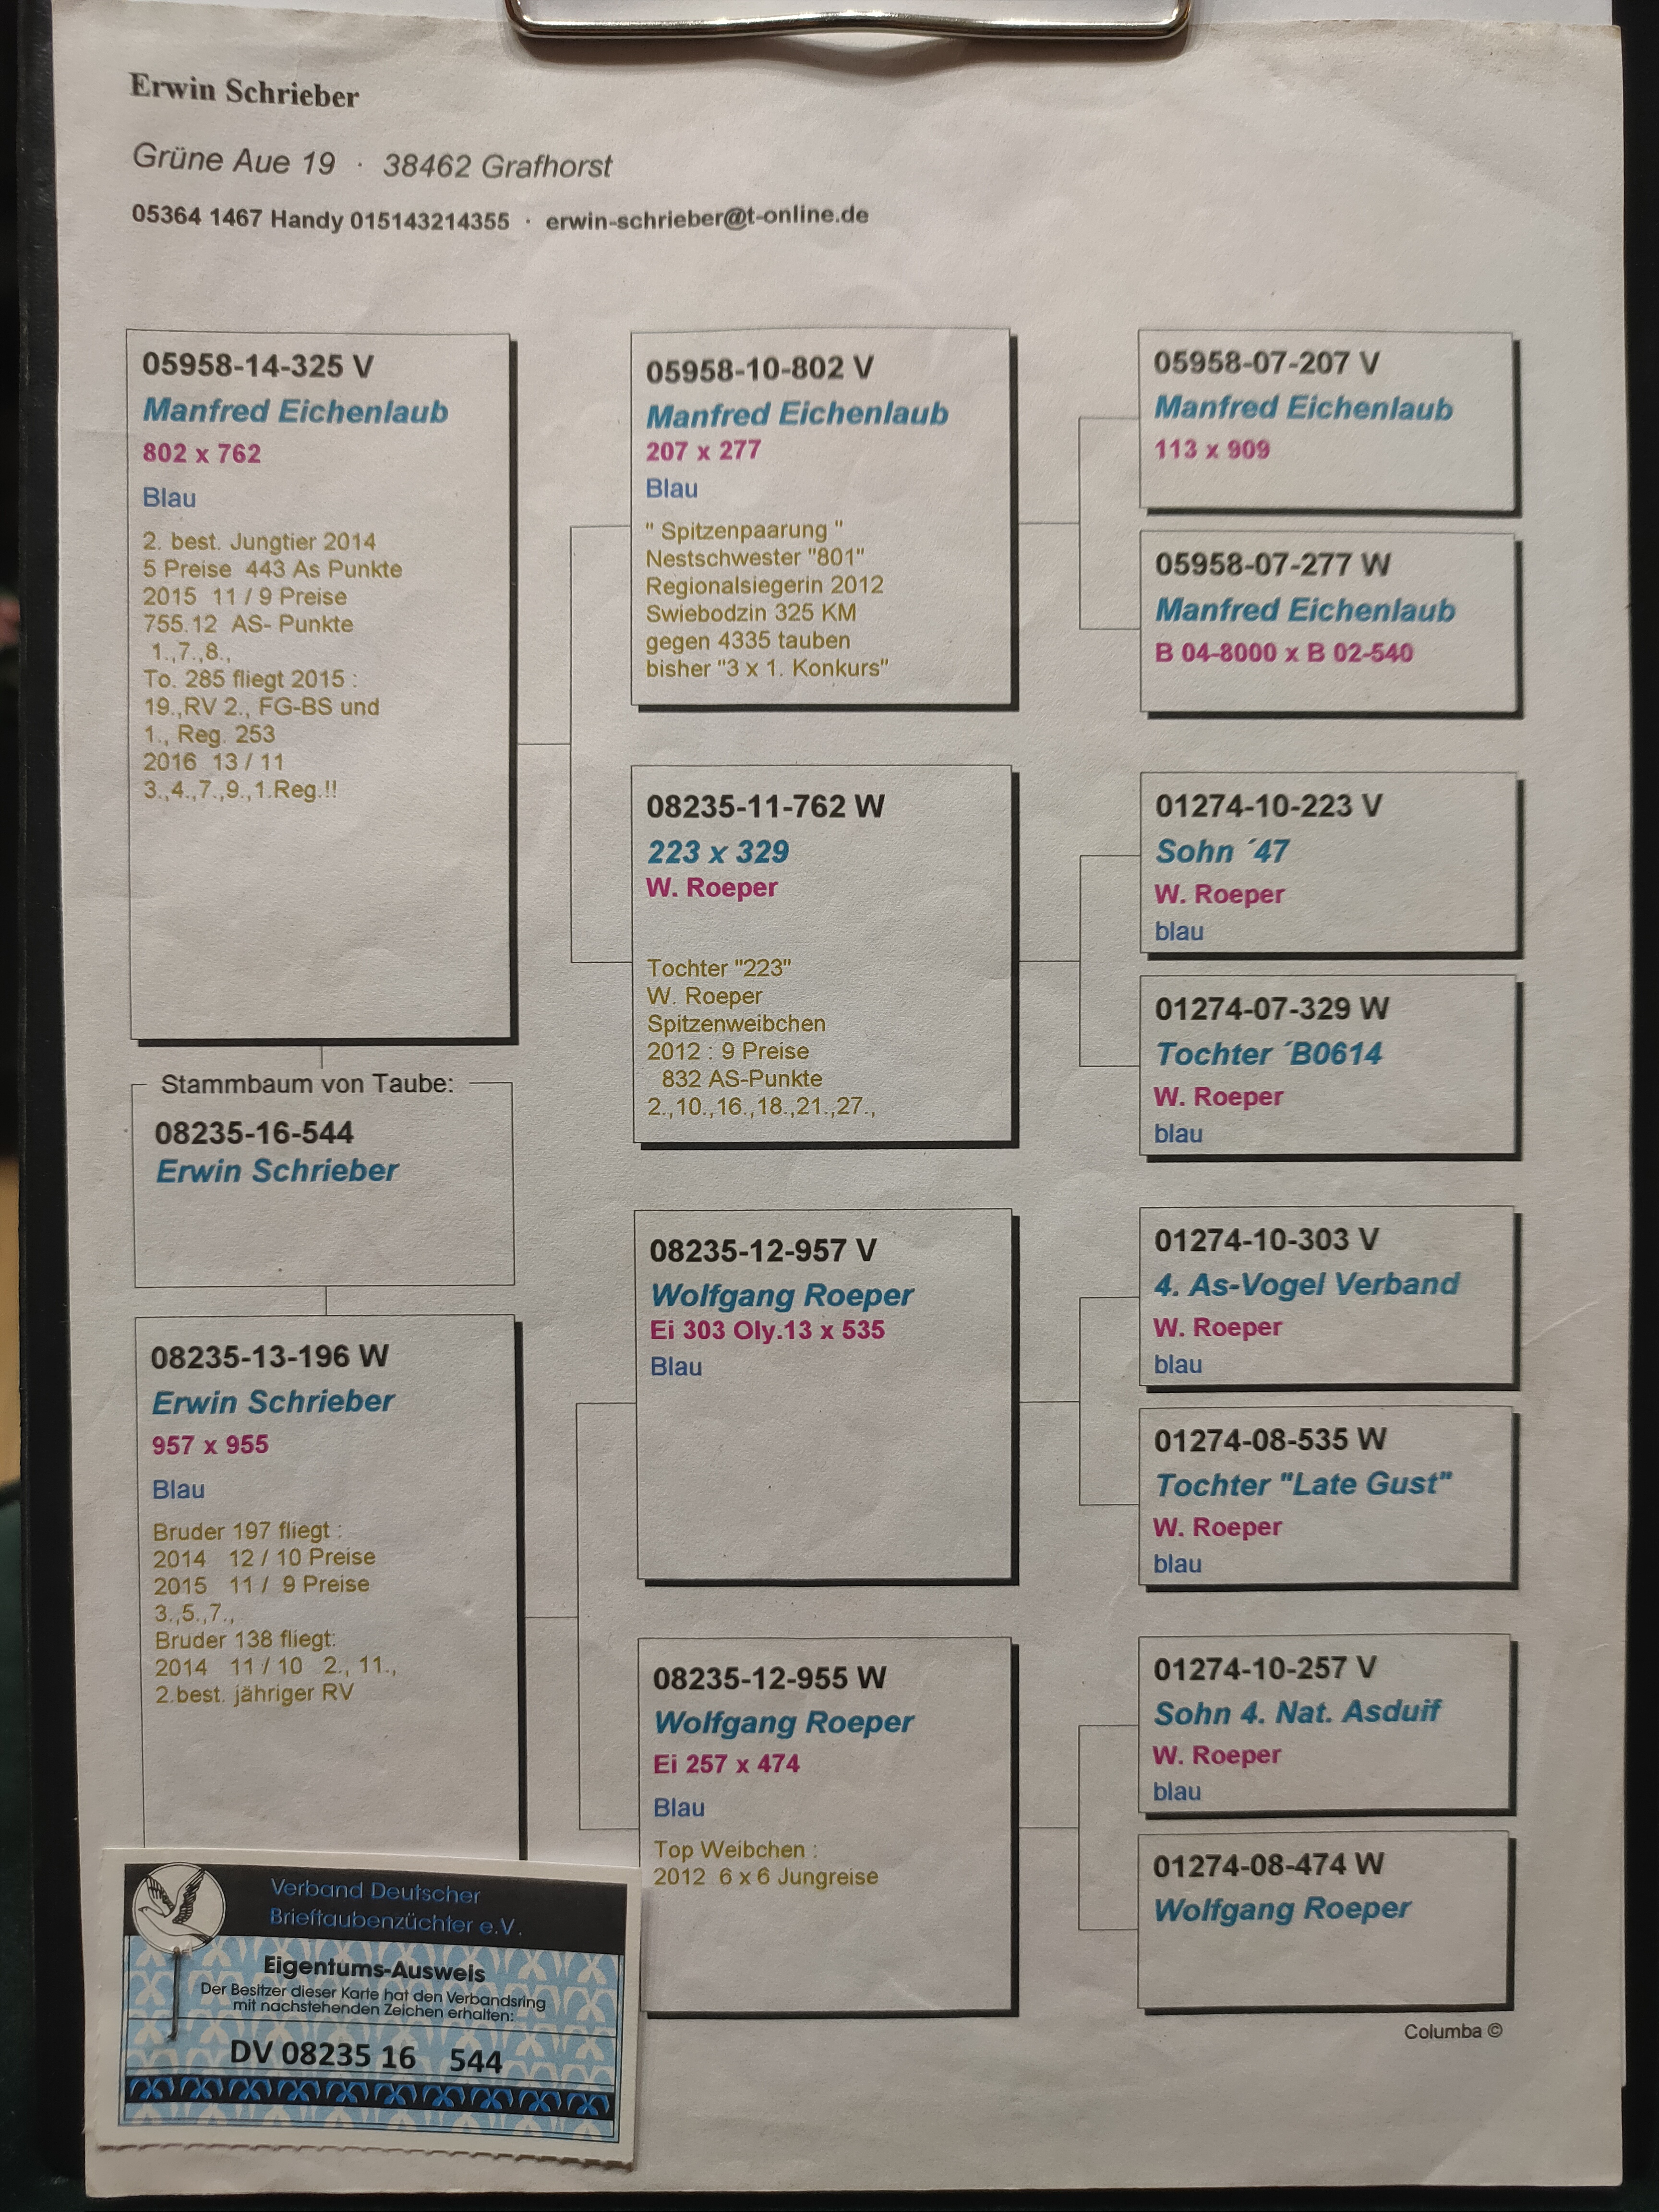 Erwin Schrieber
Grüne Aue 19 · 38462 Grafhorst
05364 1467 Handy 015143214355 · erwin-schrieber@t-online.de
05958-14-325 V
Manfred Eichenlaub
802 x 762
Blau
2. best. Jungtier 2014
5 Preise 443 As Punkte
2015 11 / 9 Preise
755.12 AS- Punkte
1.,7.,8.,
To. 285 fliegt 2015 :
19.,RV 2., FG-BS und
1., Reg. 253
2016 13 / 11
3.,4.,7.,9.,1.Reg.!!
Stammbaum von Taube:
08235-16-544
Erwin Schrieber
08235-13-196 W
Erwin Schrieber
957 x 955
Blau
Bruder 197 fliegt :
2014 12 / 10 Preise
2015 11 / 9 Preise
3.,5.,7.,
Bruder 138 fliegt:
2014 11 / 10 2., 11.,
2.best. jähriger RV
05958-10-802 V
Manfred Eichenlaub
207 x 277
Blau
" Spitzenpaarung "
Nestschwester "801"
Regionalsiegerin 2012
Swiebodzin 325 KM
gegen 4335 tauben
bisher "3 x 1. Konkurs"
08235-11-762 W
223 x 329
W. Roeper
Tochter "223"
W. Roeper
Spitzenweibchen
2012 : 9 Preise
832 AS-Punkte
2.,10.,16.,18.,21.,27.,
08235-12-957 V
Wolfgang Roeper
Ei 303 Oly.13 x 535
Blau
08235-12-955 W
Wolfgang Roeper
Ei 257 x 474
Blau
Top Weibchen :
2012 6 x 6 Jungreise
05958-07-207 V
Manfred Eichenlaub
113 x 909
05958-07-277 W
Manfred Eichenlaub
B 04-8000 x B 02-540
01274-10-223 V
Sohn ´47
W. Roeper
blau
01274-07-329 W
Tochter ´B0614
W. Roeper
blau
01274-10-303 V
4. As-Vogel Verband
W. Roeper
blau
01274-08-535 W
Tochter "Late Gust"
W. Roeper
blau
01274-10-257 V
Sohn 4. Nat. Asduif
W. Roeper
blau
01274-08-474 W
Wolfgang Roeper
Columba ©
Verband Deutscher
Brieftaubenzüchter e.V.
Eigentums-Ausweis
Der Besitzer dieser Karte hat den Verbandsring
mit nachstehenden Zeichen erhalten:
DV 08235 16 544